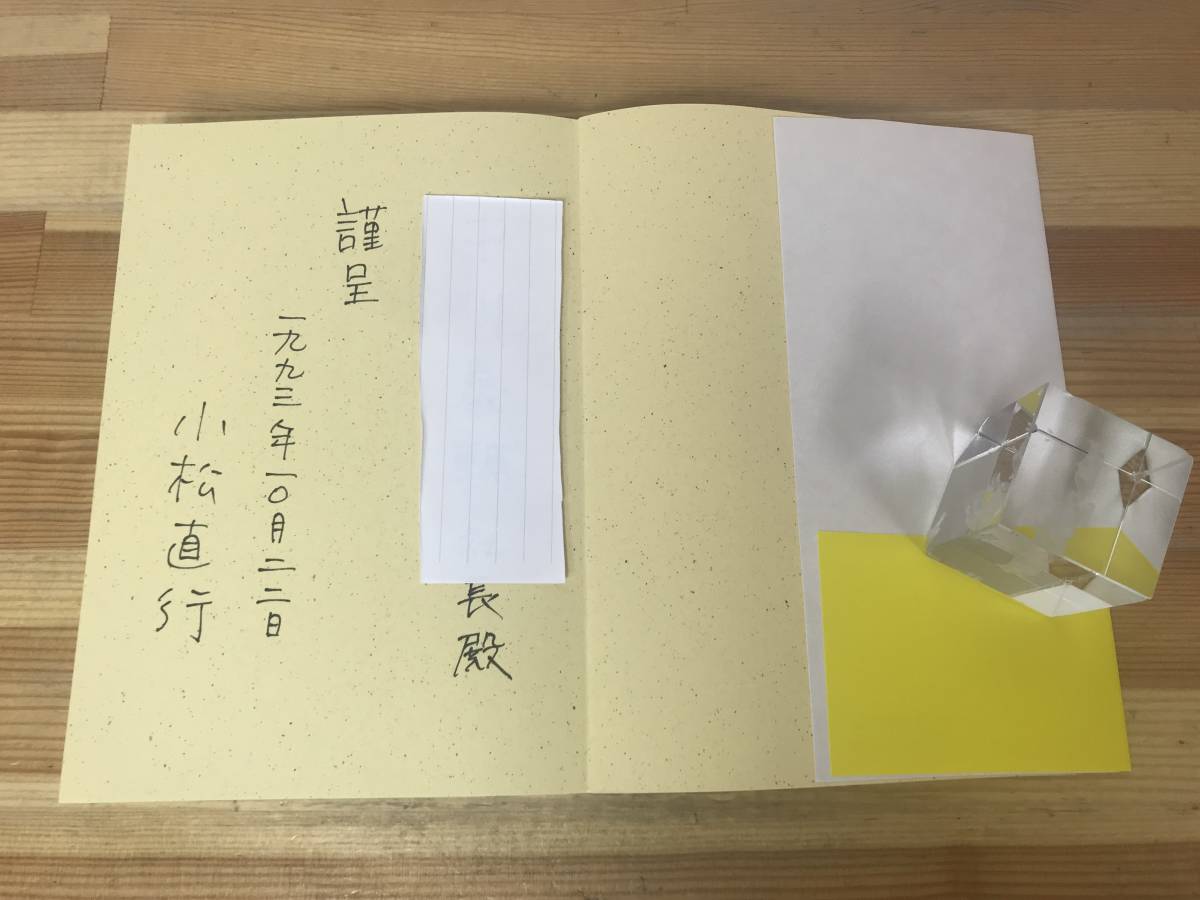 長殿
謹呈
一九九三年一〇月二二日
小松直行